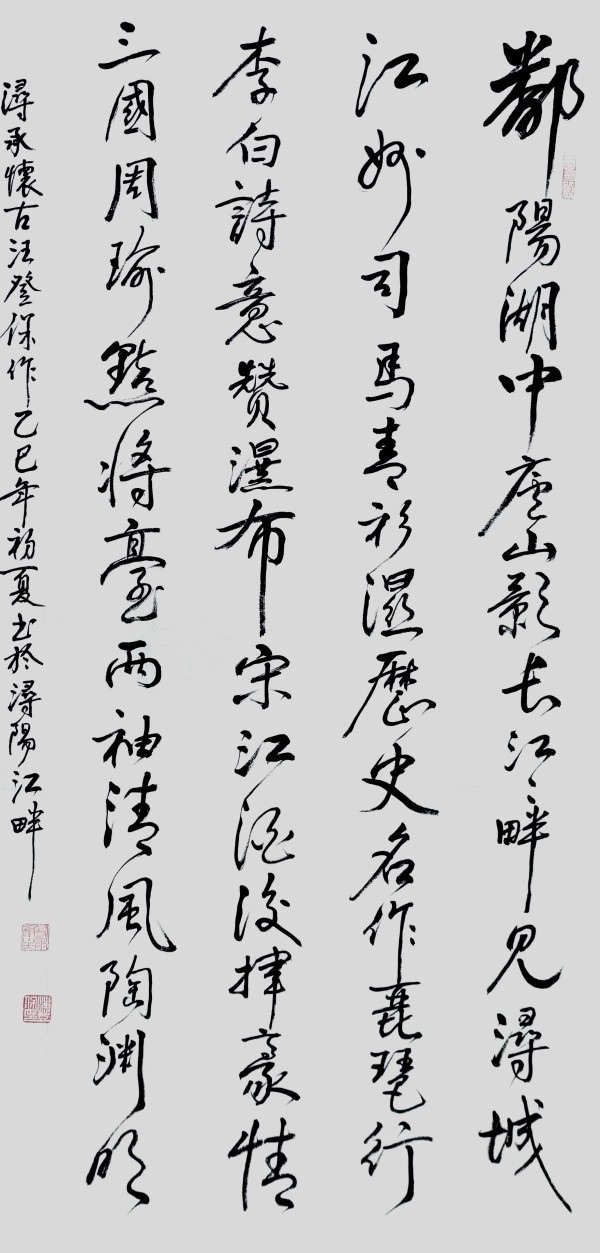 鄱陽湖中廬山影長江畔見潯城
江州司馬青衫濕歷史名作琵琶行
李白詩意贊瀑布宋江酒後揮豪情
三國周瑜點將臺兩袖清風陶渊明
潯承懷古汪登保作乙巳年初夏書於潯陽江畔